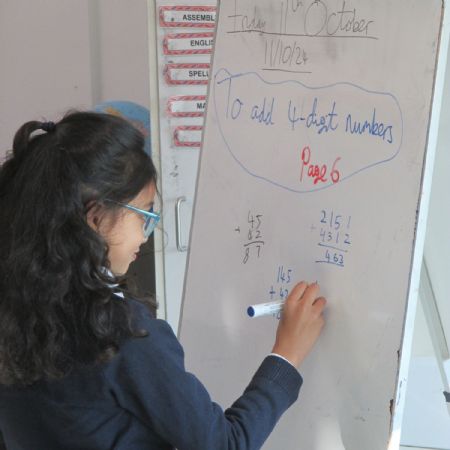 ASSEMBL
ENGLI
SPELL
MA
11th October
11/10/24
To add 4-digit numbers
Page 6
45
+ 42
87
2151
+ 4312
463
145
+